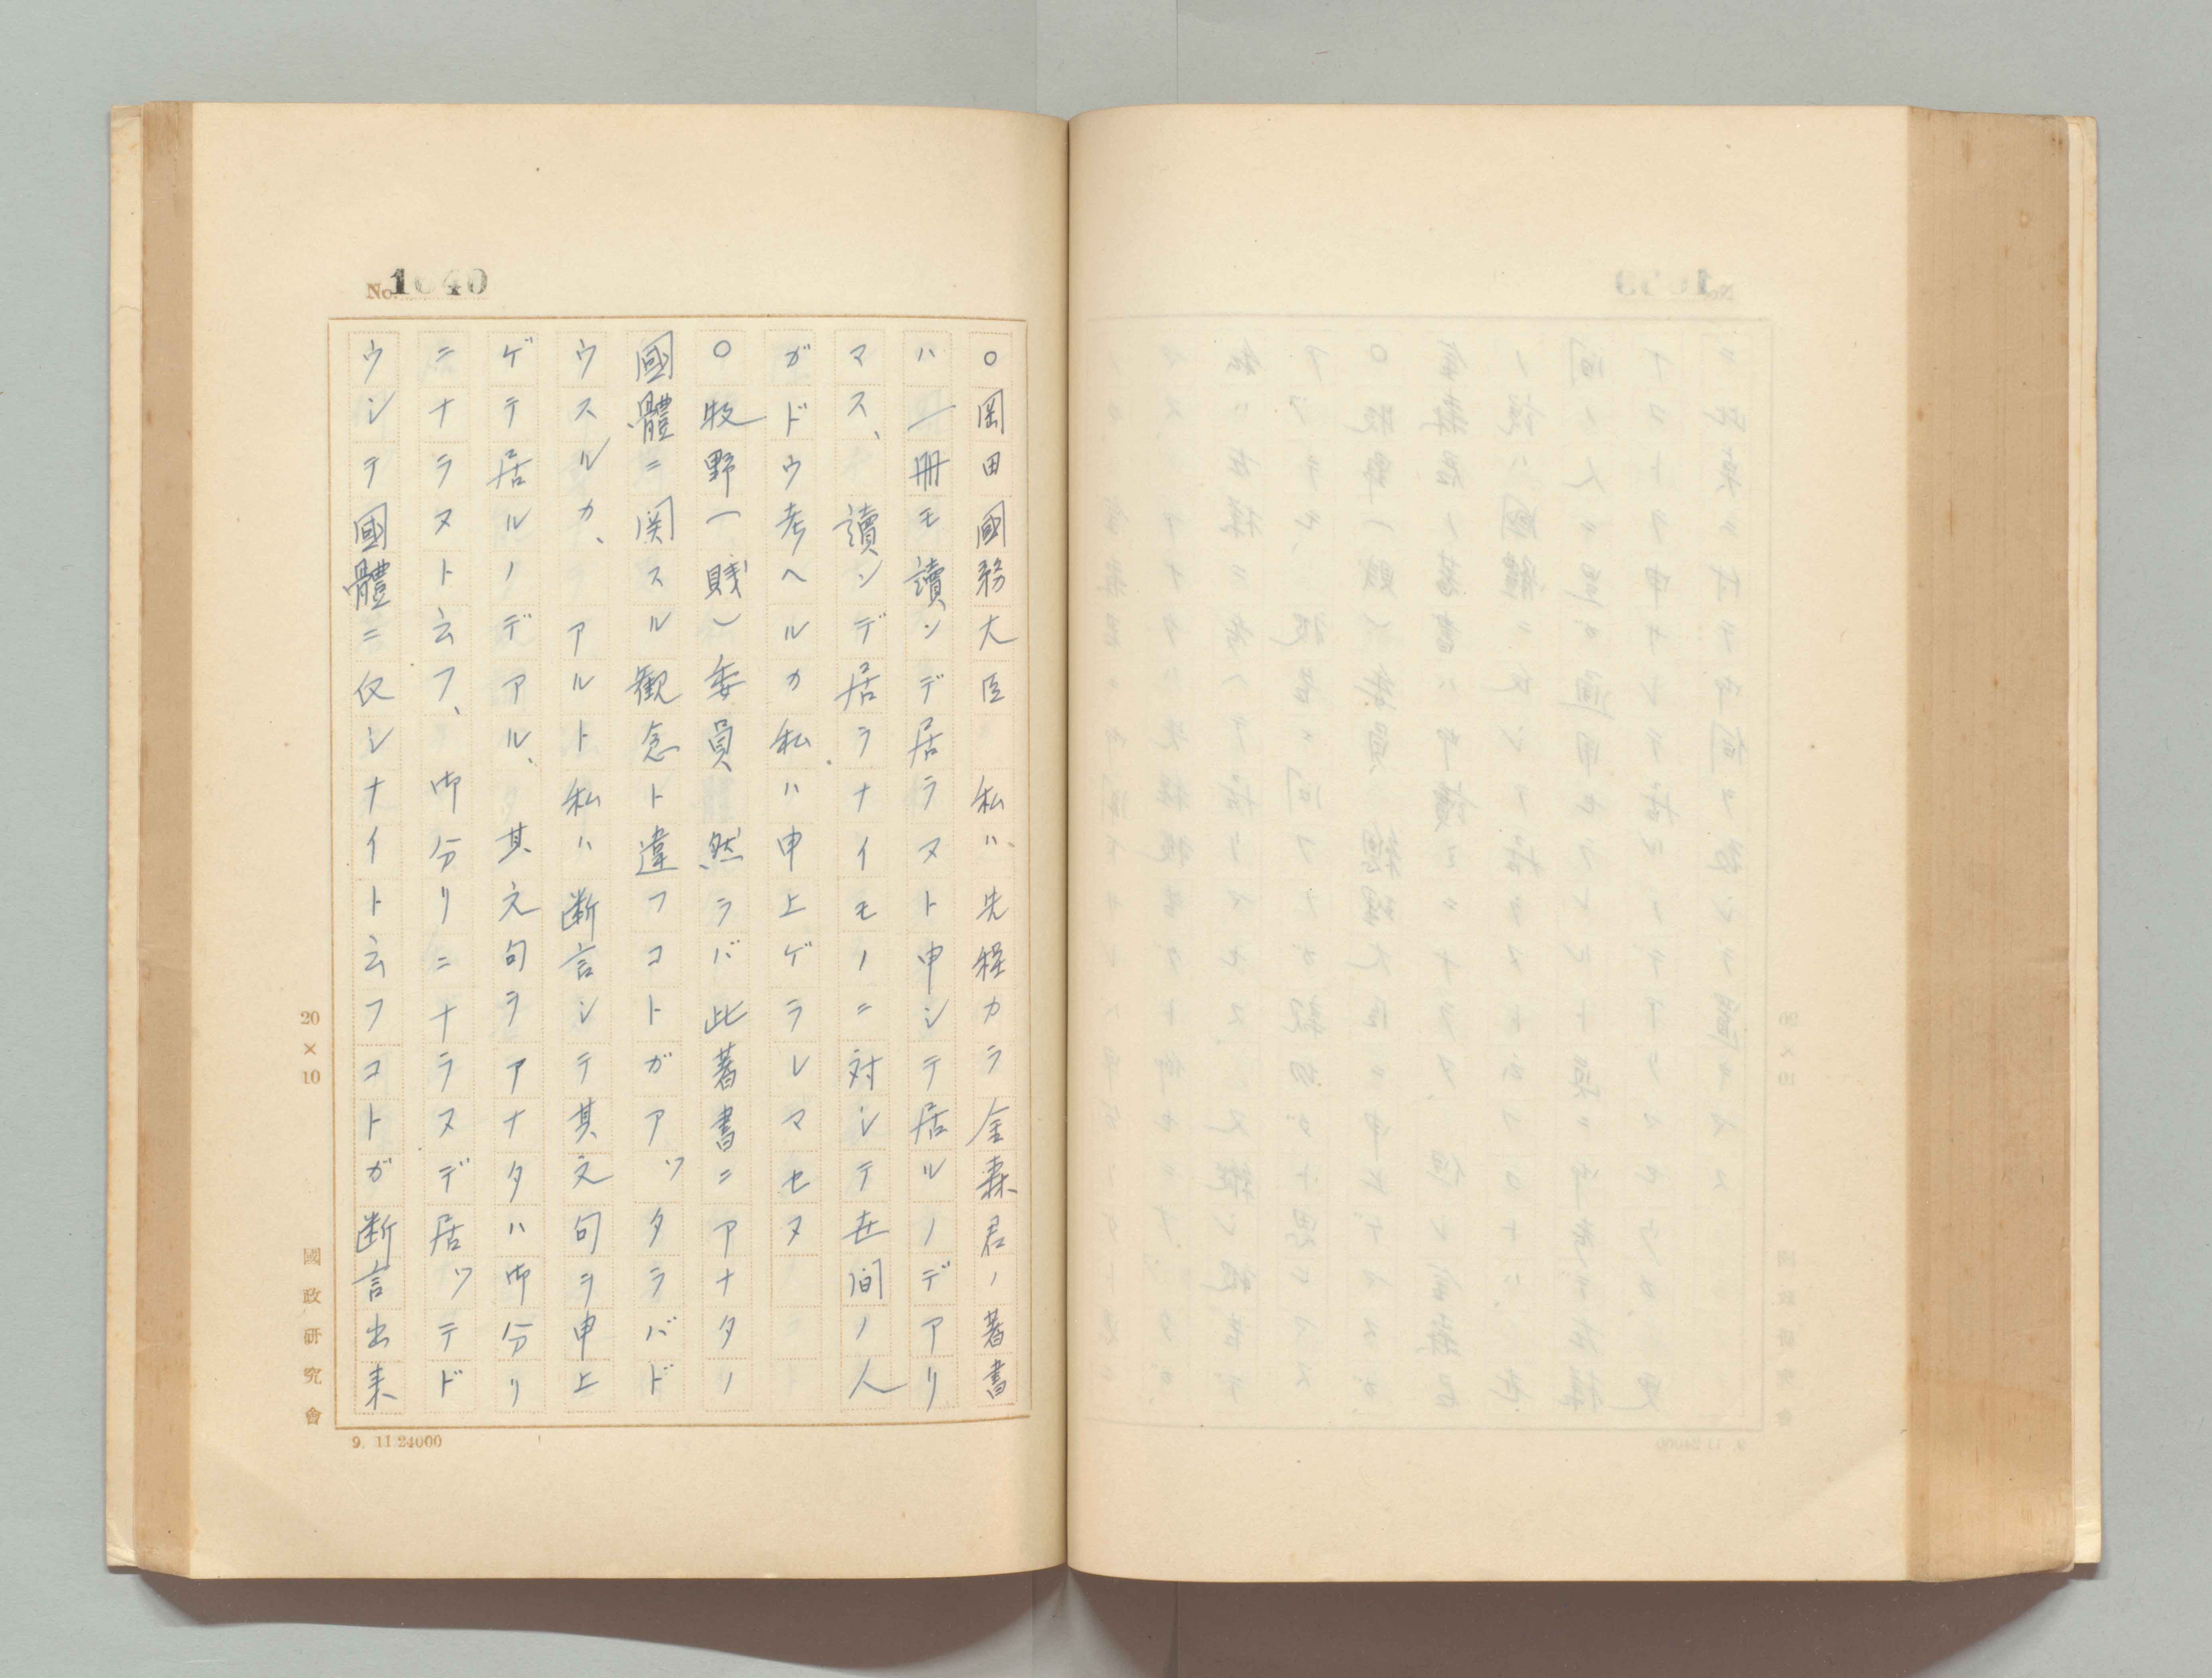 No. 1040
○岡田國務大臣　私ハ、先程カラ金森君ノ著書
ハ一冊モ讀ンデ居ラヌト申シテ居ルノデアリ
マス、讀ンデ居ラナイモノニ対シテ世間ノ人
ガドウ考ヘルカ私ハ申上ゲラレマセヌ
○牧野（賤）委員　然ラバ此著書ニアナタノ
國體ニ関スル観念ト違フコトガアッタラバド
ウスルカ、アルト私ハ断言シテ其文句ヲ申上
ゲテ居ルノデアル、其文句ヲアナタハ御分リ
ニナラヌト云フ、御分リニナラヌデ居ッテド
ウシテ國體ニ反シナイト云フコトガ断言出来
20×10
國政研究會
9. 11.24000